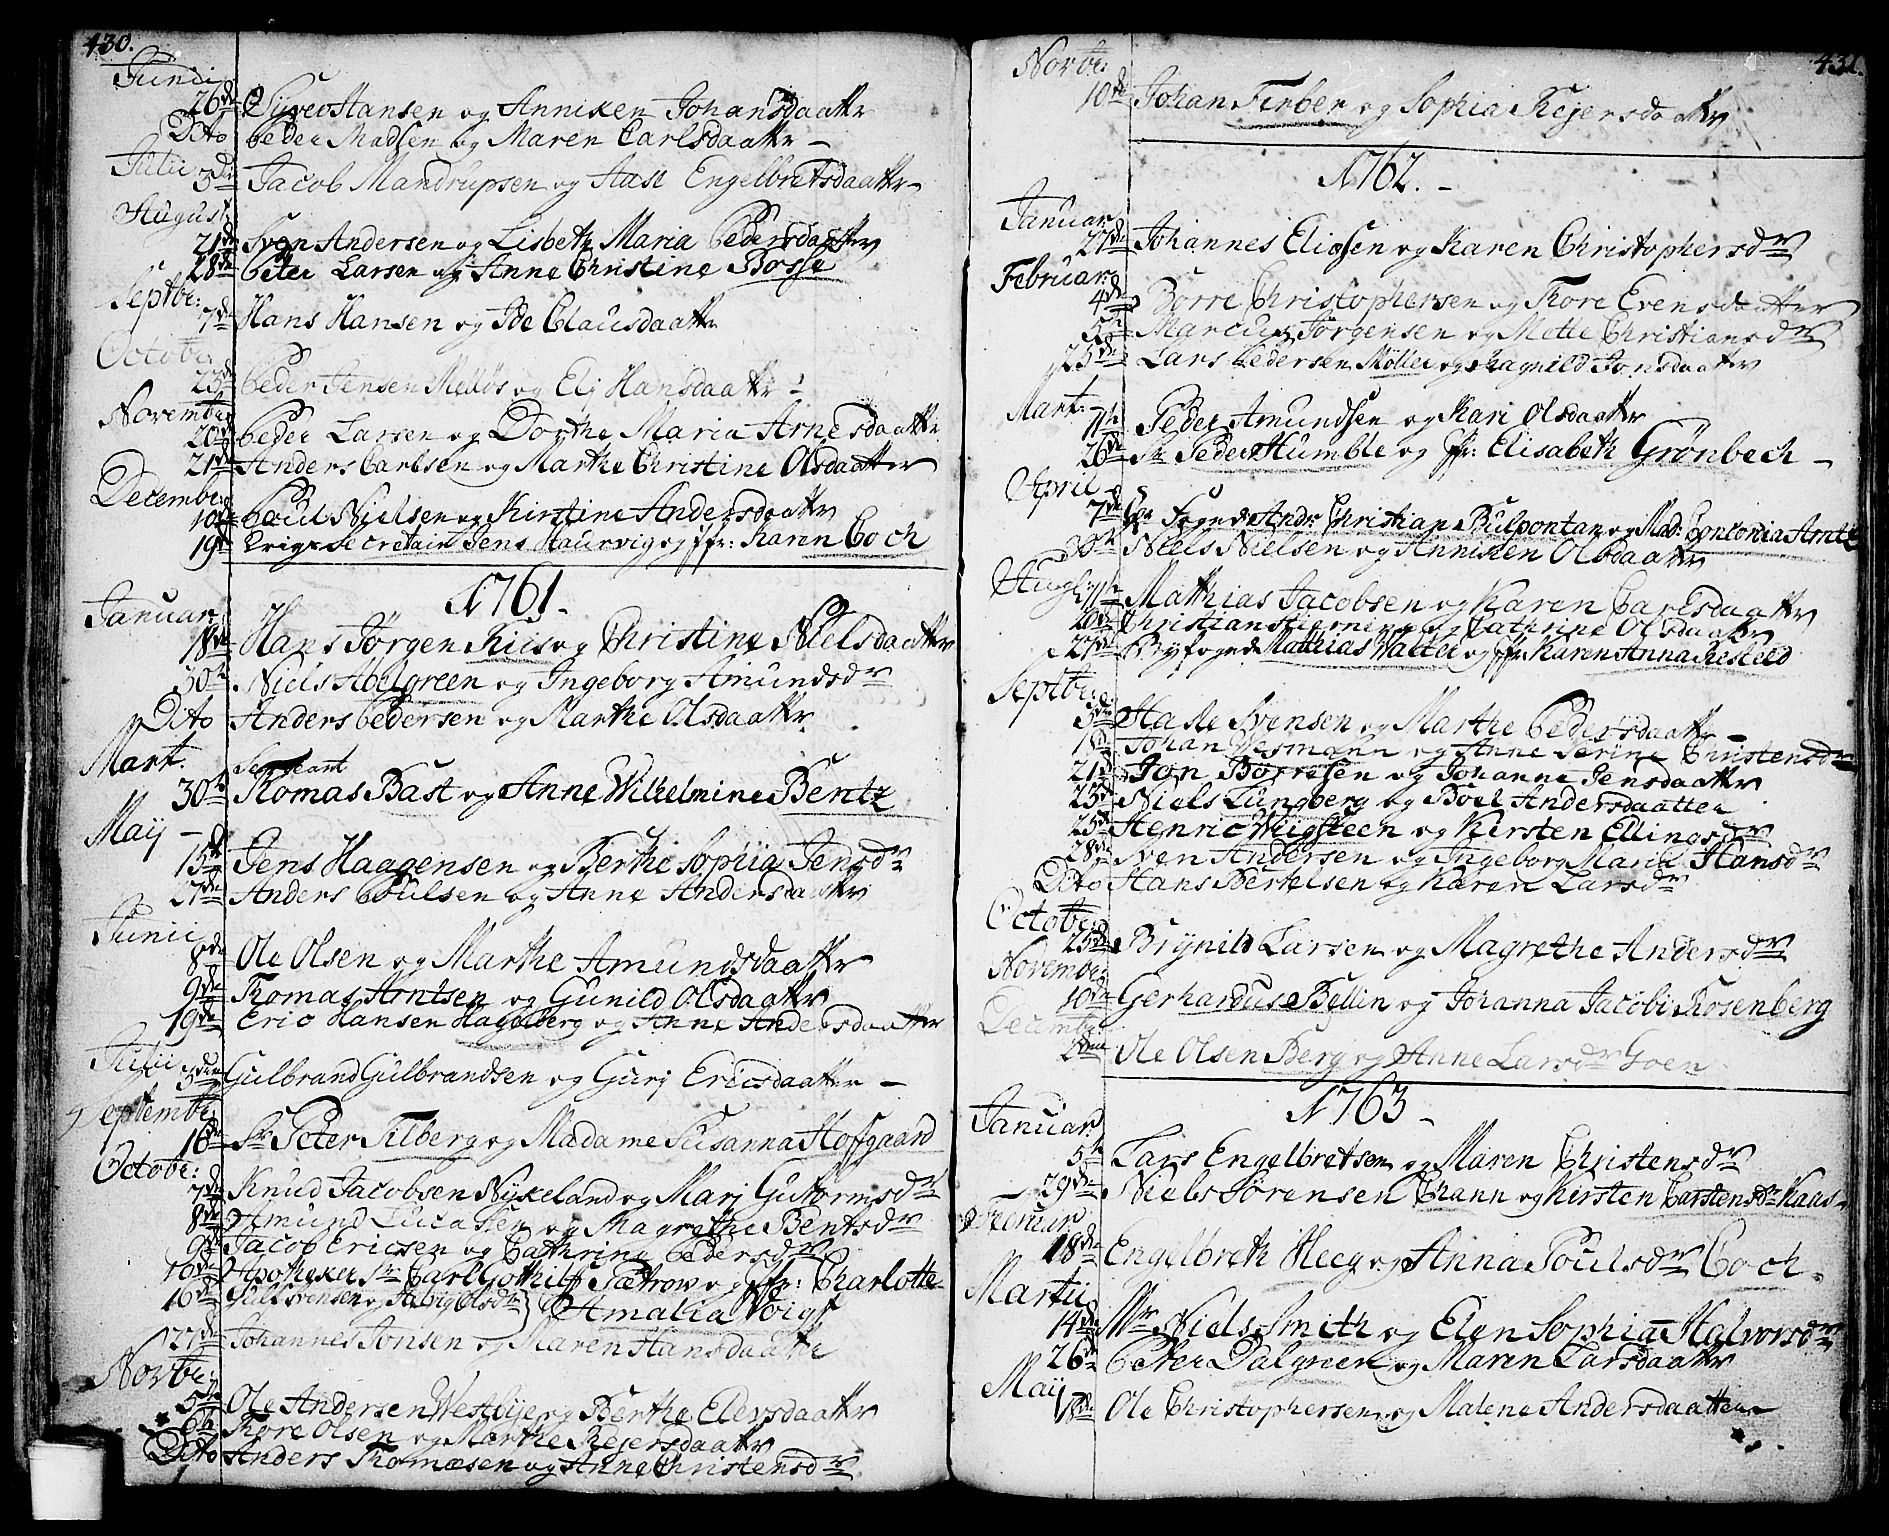 430.
Junii
26de Syver Hansen og Anniken Johansdaattr
Dito Peder Madsen og Maren Carlsdaattr –
Julii
3de Jacob Mandrupsen og Aase Engelbretsdaattr –
August
21de Sven Andersen og Lisbeth Maria Pedersdaatter
28de Peter Larsen og Anne Christine Bosse
Septbr:
7de Hans Hansen og Ide Clausdaattr
October
23de Peder Jensen Melløs og Elj Hansdaattr
November
20de Peder Larsen og Dorthe Maria Arnesdaattr
21de Anders Carlsen og Marthe Christine Olsdaatter
December
10de Poul Nielsen og Kirstine Andersdaattr
19de Krigs Secretair Jens Haurvig og Jfr: Karen Coch
1761.
Januar
18de Hans Jørgen Kiis og Christine Nielsdaattr
30te Niels Abelgreen og Ingeborg Amundsdr
Dito Anders Pedersen og Marthe Olsdaattr
Mart.
Sergeant
30te Thomas Bast og Anne Wilhelmine Bentz
Maij –
15de Jens Haagensen og Berthe Sophia Jensdr
27de Anders Poulsen og Anne Andersdaattr
Junii
8de Ole Olsen og Marthe Amundsdaattr
9de Thomas Arntsen og Gunild Olsdaattr
19de Eric Hansen Hagelberg og Anne Andersdaatter
Julii
5den Gulbrand Gulbrandsen og Gurj Ericsdaatter –
September
16de Sr Peter Filberg og Madame Susanna Hofgaard
Octobr:
7de Knud Jacobsen Nykeland og Marj Guttormsdr
8de Amund Lucassen og Magrethe Bentsdr
9de Jacob Ericsen og Cathrine Pedersdr
16de Apotheker Sr Carl Gothilf Fætrow og Jfr: Charlotte
16de Gulf Svensen og Salvig Olsdr } Amalia Voigt
27de Johannes Jonsen og Maren Hansdaattr
Norbr:
5te Ole Andersen Westbye og Berthe Elersdaattr
6te Thore Olsen og Marthe Rejersdaattr
Dito Anders Thomæsen og Anne Christensdr
431.
Norbr:
10de Johan Ferber og Sophia Rejersdaattr
1762. –
Januar
27de Johannes Eliasen og Karen Christophersdr
Februar
4de Børre Christophersen og Thore Evensdaatter
5te Marcus Jørgensen og Mette Christiansdr
25de Lars Pedersen Møller og Ragnild Jonsdaatter
Mart:
11te Peder Amundsen og Kari Olsdaattr
26de Sr Peder Humble og Jfr: Elisabeth Grønbech –
April –
7de Fogned Andr: Christian Bulpontan og Mad: Contonia Arntz
30te Niels Nielsen og Anniken Olsdaattr
Aug:
11te Mathias Jacobsen og Karen Carlsdaattr
20de Christian og Cathrine Olsdaattr
27de Byfogned Matthias Walter og Jfr Karen Anna Resteld
Septbr:
3de Hasle Svensen og Marthe Pedersdaattr –
Johan Wesmann og Anne Serine Christensdr
21de Jon Børresen og Johanne Jensdaattr
23de Niels Lungberg og Boel Andersdaatter
25de Henric Wiigsteen og Kirsten Ellingsdr
28de Sven Andersen og Ingeborg Marie Hansdr
Dito Hans Bertelsen og Karen Larsdr
October
25de Brynild Larsen og Magrethe Andersdr
November
10de Gerhardus Bellin og Johanna Jacobi Rosenberg
December
2den Ole Olsen Berg og Anne Larsdr Goen
1763 –
Januar:
5te Lars Engelbretsen og Maren Christensdr
29de Niels Sørensen Thann og Kirsten Carstensdr Kaas –
Februar
18de Engelbreth Heeg og Anna Poulsdr Coch –
Martii
14de Mr Niels Smith og Elen Sophia Halvorsdr
26de Peter Dalgreen og Maren Larsdaattr
May –
18de Ole Christophersen og Malene Andersdaatter